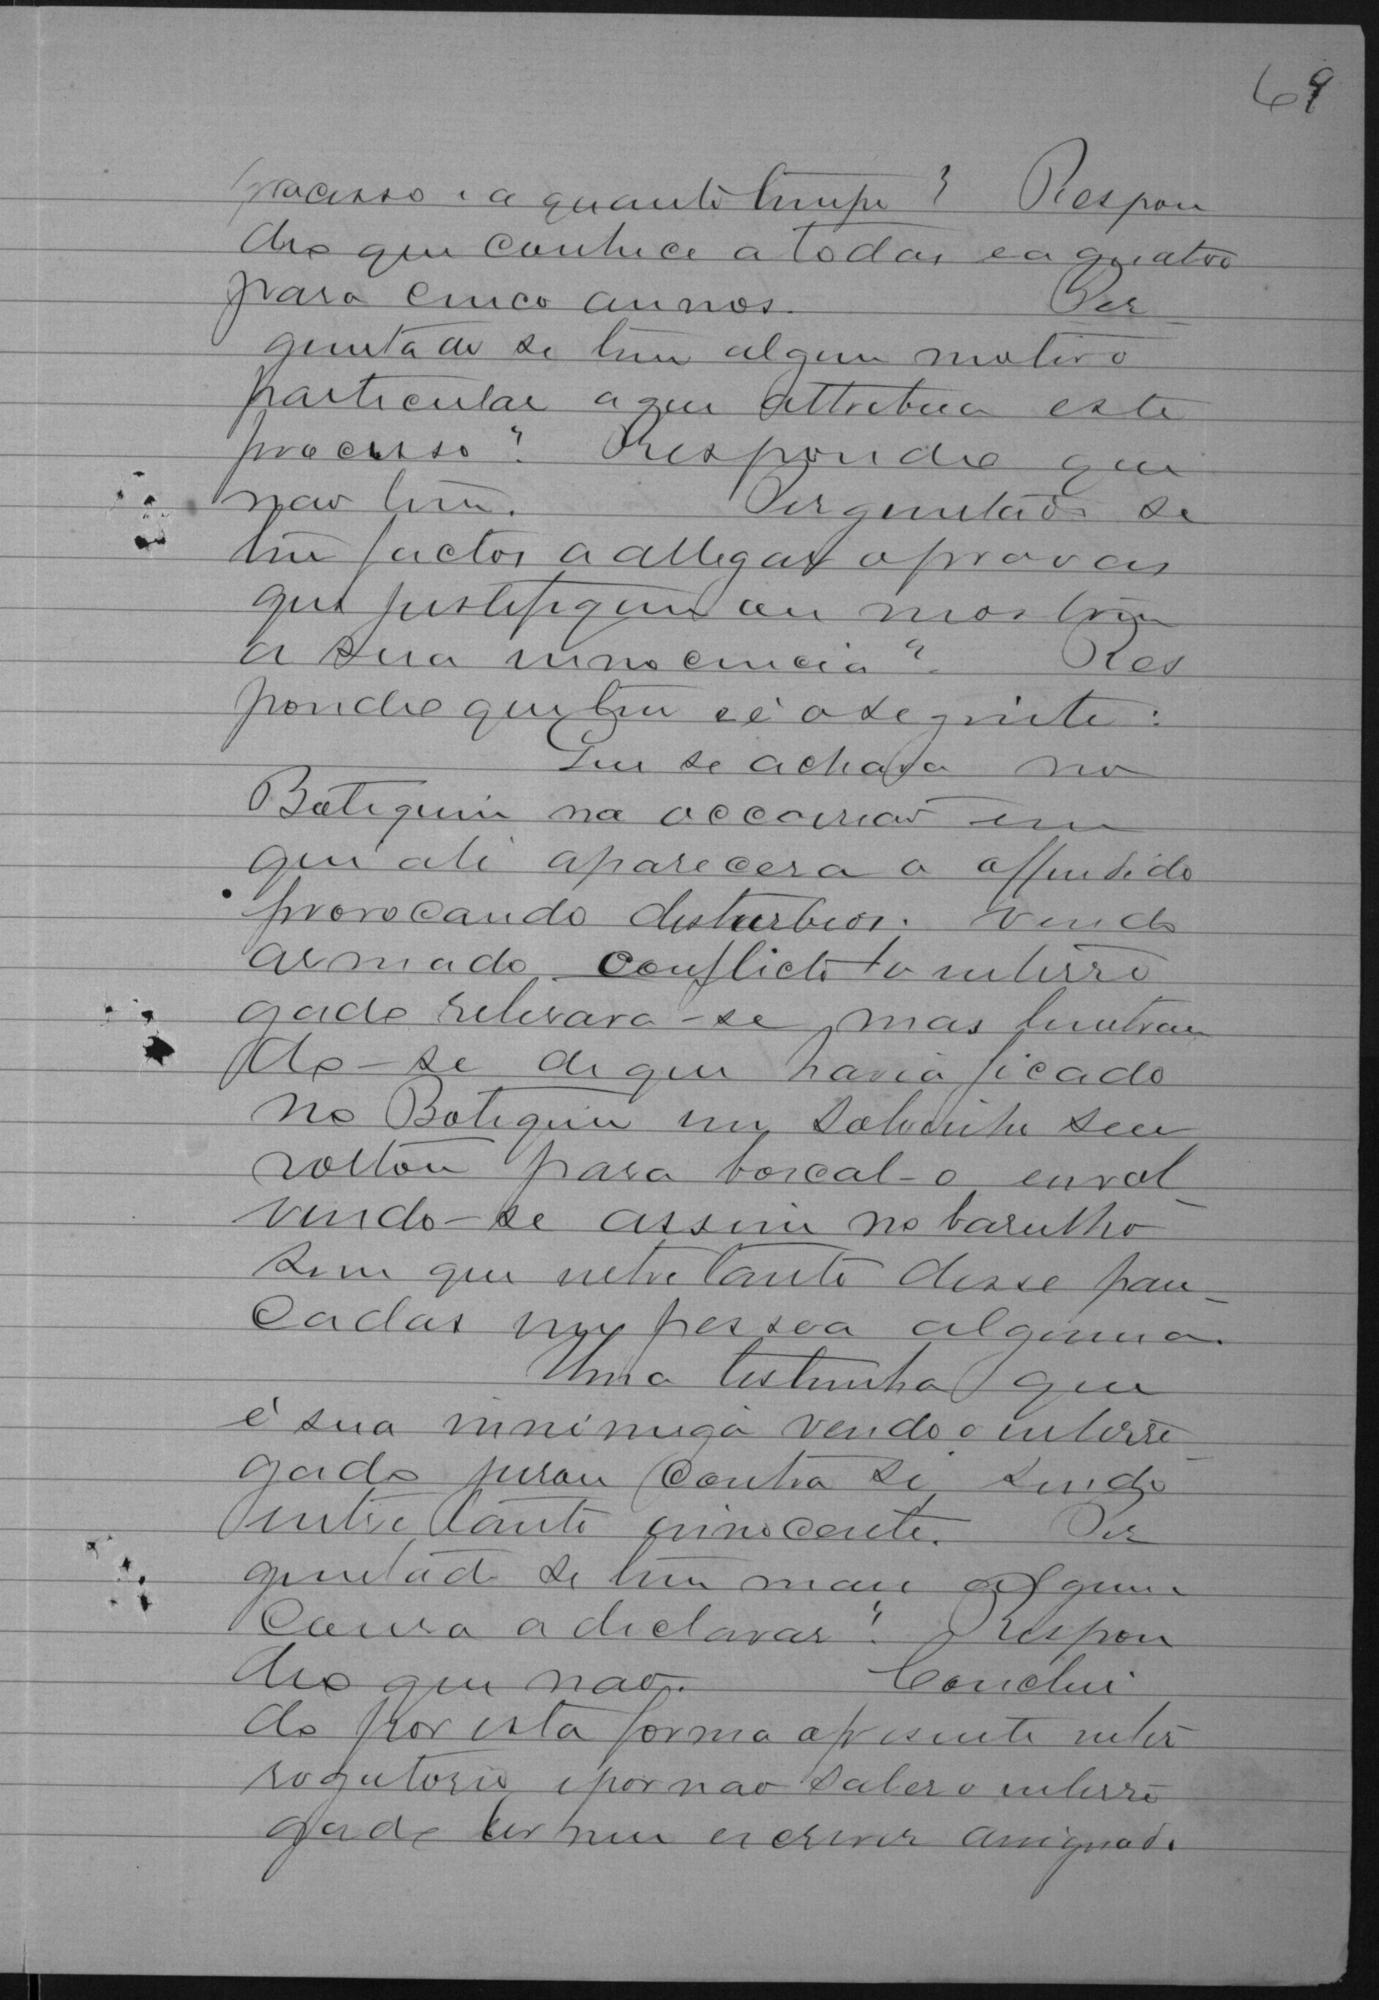 69
processo e a quanto tempo? Respon
deo que conhece a todas e a quatro
para cinco annos. Per
guntado se tem algum motivo
particular a que attribua este
processo? Respondeo que
nao tem. Perguntado se
tem factos a allegar o provas
que justifiquem ou mostrem
a sua innocencia? Res
pondeo que tem e é o seguinte:
Que se achava no
Botequim na occasiao em
que ali aparecera o offendido
provocando disturbios. Vendo
armado conflicto o interro
gado retirara-se mas lembran
do-se de que havia ficado
no Botequim um sobrinho seu
voltou para buscal-o envol
vendo-se assim no barulho
sem que entretanto desse pan-
cadas em pessoa alguma.
Uma testemunha que
é sua innimiga vendo o interro
gado jurou contra si sendo
entretanto innocente. Per
guntado se tem mais alguma
cousa a declarar? Respon
deo que nao. Conclui
do por esta forma o presente inter
rogatorio e por nao saber o interro
gado ler nem escrever assignado